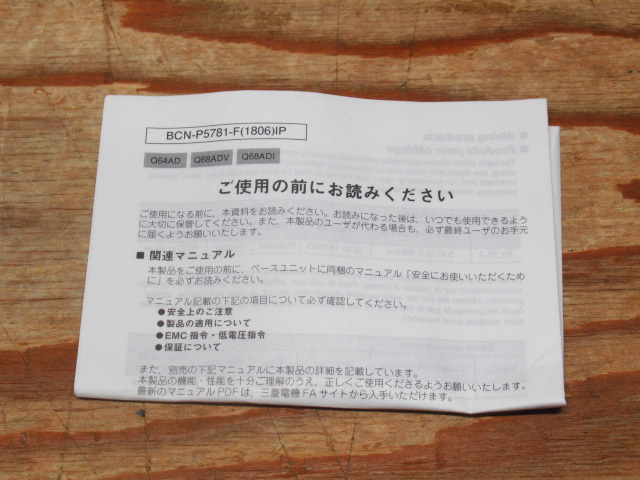 BCN-P5781-F(1806)IP
Q64AD Q68ADV Q68ADI
ご使用の前にお読みください
ご使用になる前に、本資料をお読みください。お読みになった後は、いつでも使用できるよう
に大切に保管してください。また、本製品のユーザが代わる場合も、必ず最終ユーザのお手元
に届くようお願いいたします。
■ 関連マニュアル
本製品をご使用の前に、ベースユニットに同梱のマニュアル「安全にお使いいただくため
に」を必ずお読みください。
マニュアル記載の下記の項目について必ず確認してください。
●安全上のご注意
●製品の適用について
●EMC指令・低電圧指令
●保証について
また、別売の下記マニュアルに本製品の詳細を記載しています。
本製品の機能・性能を十分ご理解のうえ、正しくご使用くださるようお願いいたします。
最新のマニュアルPDFは、三菱電機FAサイトから入手いただけます。
■ Wiring products
■ Produits pour câblage